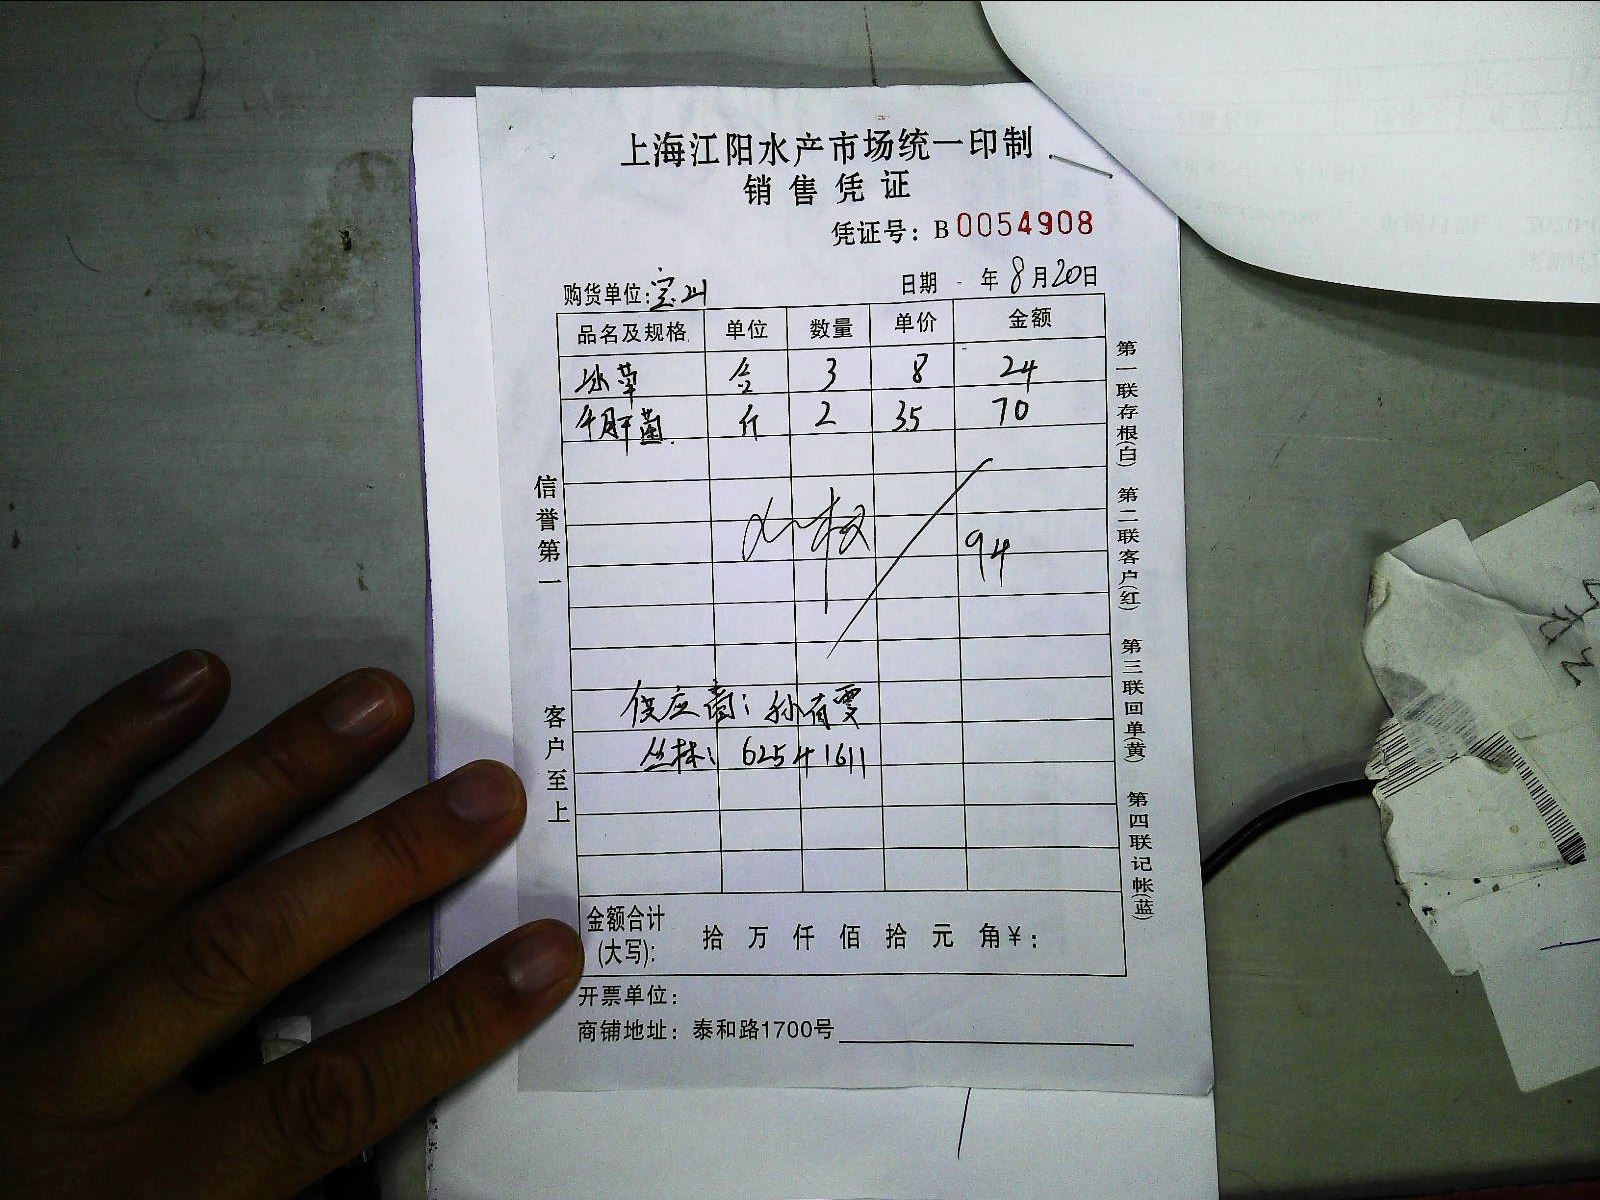 上海江阳水产市场统一印制
销售凭证
凭证号：B0054908
购货单位：宝山 日期 年8月20日
品名及规格 单位 数量 单价 金额
冰草 盒 3 8 24
牛肝菌 斤 2 35 70
94
供应商：孙有雯
丛林：62541611
金额合计(大写)： 拾 万 仟 佰 拾 元 角￥：
开票单位：
商铺地址：泰和路1700号
信誉第一
客户至上
第一联存根(白)
第二联客户(红)
第三联回单(黄)
第四联记帐(蓝)